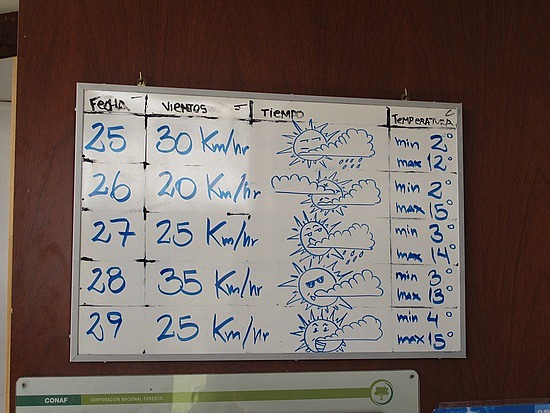 FECHA VIENTOS TIEMPO TEMPERATURA
25 30 Km/hr min 2°
max 12°
26 20 Km/hr min 2°
max 15°
27 25 Km/hr min 3°
max 14°
28 35 Km/hr min 3°
max 13°
29 25 Km/hr min 4°
max 15°
CONAF CORPORACIÓN NACIONAL FORESTAL